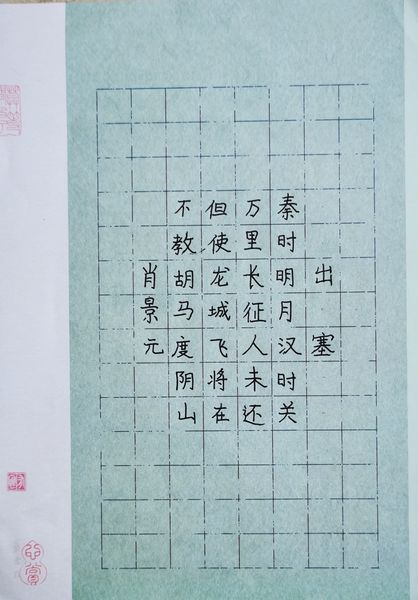 出塞
秦时明月汉时关
万里长征人未还
但使龙城飞将在
不教胡马度阴山
肖景元